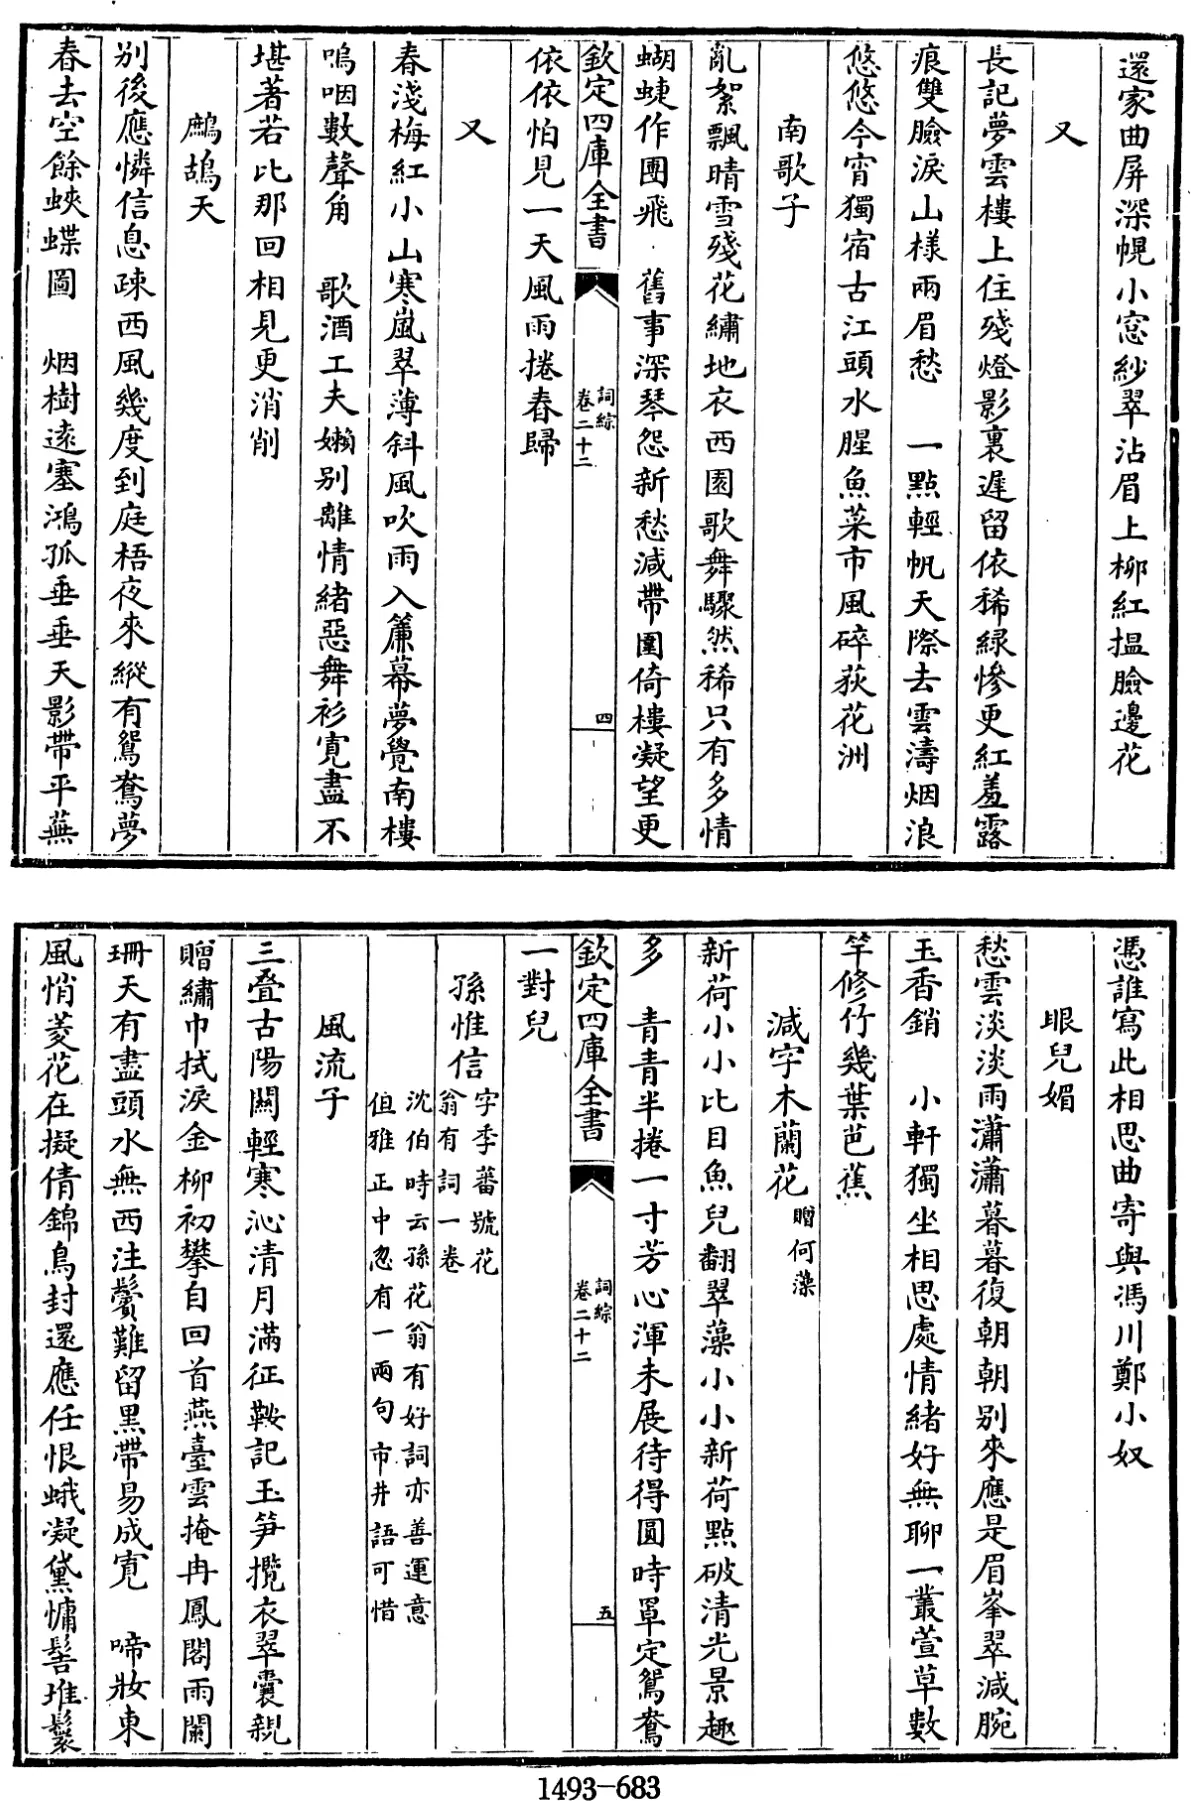 還家曲屏深幌小窓紗翠沾眉上柳紅揾臉邊花
又
長記夢雲樓上住殘燈影裏遲留依稀緑慘更紅羞露
痕雙臉淚山樣兩眉愁　一點輕帆天際去雲濤烟浪
悠悠今宵獨宿古江頭水腥魚菜市風碎荻花洲
南歌子
亂絮飄晴雪殘花繡地衣西園歌舞驟然稀只有多情
蝴蜨作團飛　舊事深琴怨新愁減帶圍倚樓凝望更
欽定四庫全書
詞綜
卷二十二
四
依依怕見一天風雨捲春歸
又
春淺梅紅小山寒嵐翠薄斜風吹雨入簾幕夢覺南樓
嗚咽數聲角　歌酒工夫嬾别離情緒惡舞衫寛盡不
堪著若比那回相見更消削
鷓鴣天
别後應憐信息疎西風幾度到庭梧夜來縱有鴛鴦夢
春去空餘蛺蝶圖　烟樹遠塞鴻孤垂垂天影帶平蕪
憑誰寫此相思曲寄與馮川鄭小奴
眼兒媚
愁雲淡淡雨瀟瀟暮暮復朝朝别來應是眉峯翠減腕
玉香銷　小軒獨坐相思處情緒好無聊一叢萱草數
竿修竹幾葉芭蕉
減字木蘭花贈何藻
新荷小小比目魚兒翻翠藻小小新荷點破清光景趣
多　青青半捲一寸芳心渾未展待得圓時罩定鴛鴦
欽定四庫全書
詞綜
卷二十二
五
一對兒
孫惟信字季蕃號花
翁有詞一卷
沈伯時云孫花翁有好詞亦善運意
但雅正中忽有一兩句市井語可惜
風流子
三疊古陽關輕寒沁清月滿征鞍記玉笋攬衣翠囊親
贈繡巾拭淚金柳初攀自回首燕臺雲掩冉鳳閣雨闌
珊天有盡頭水無西注鬢難留黑帶易成寛　啼妝東
風悄菱花在擬倩錦鳥封還應任恨蛾凝黛慵髻堆鬟
1493-683